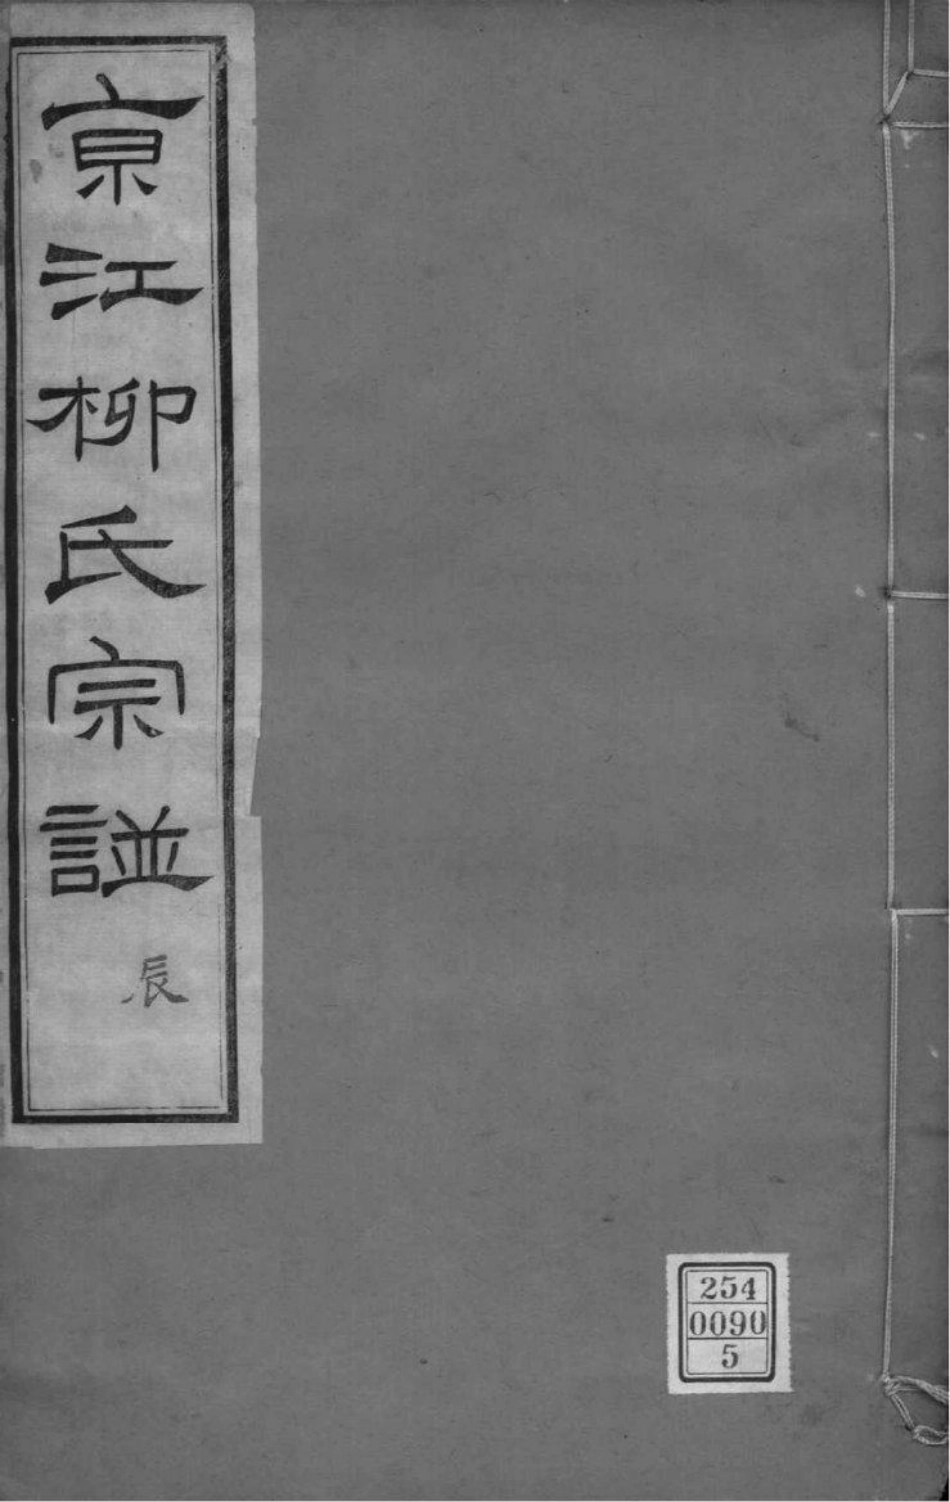 亰江柳氏宗譜
辰
254
0090
5